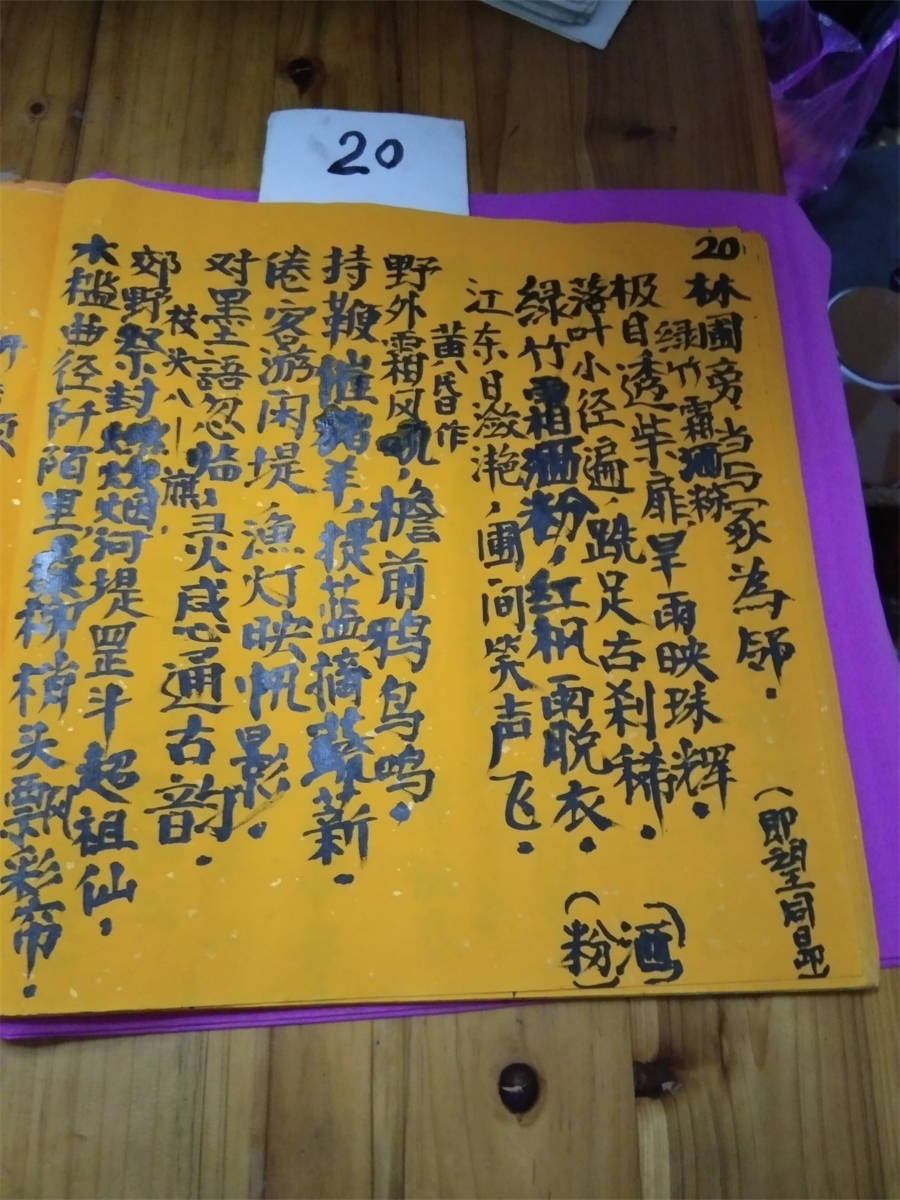 20
20
林圃旁,当与冢為邻.
(即望同昂)
绿竹霜洒粉
极目透柴扉,旱雨映珠辉.
落叶小径遍,跣足古刹稀.
绿竹霜洒粉,红枫雨脱衣.
江东日潋滟,圃间笑声飞.
(洒
粉)
黄昏作
野外霜柑风吼,檐前鸦鸟鸣.
持鞭催猪羊,提蓝摘蔬薪.
倦客游闲堤,漁灯映帆影.
对墨语忽临,灵感通古韵.
枝头八一旗
郊野祭封燃炊烟,河堤罡斗超祖仙,
木槛曲径阡陌里,柳梢头飘彩帘.